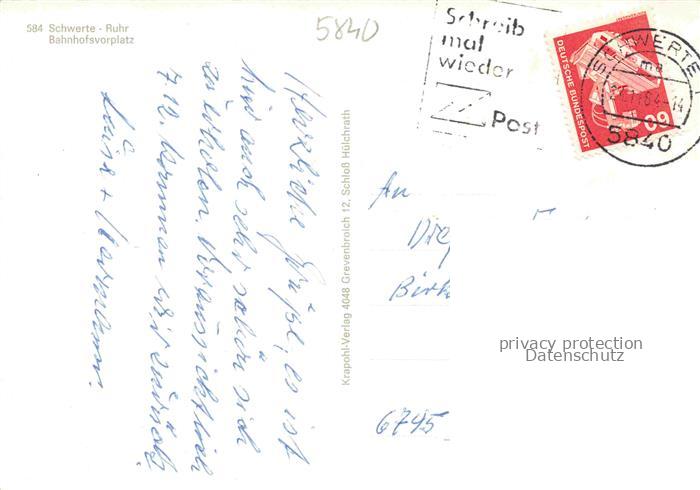 584 Schwerte - Ruhr
Bahnhofsvorplatz
5840
Schreib
mal
wieder
Post
DEUTSCHE BUNDESPOST
60
SCHWERTE
5840
Herzliche Grüße, es ist
hier auch sehr schön sich
zu erholen. Voraussichtlich
7.12. kommen wir zurück.
Luise + Hermann.
Krapohl-Verlag 4048 Grevenbroich 12, Schloß Hülchrath
An
Birk
6745
privacy protection
Datenschutz